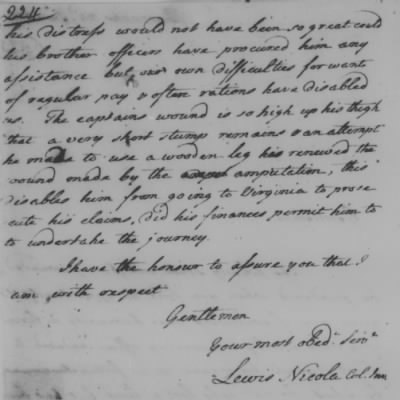 2211
his distress would not have been so great could
his brother officers have procured him any
assistance but our own difficulties for want
of regular pay & often rations have disabled
us. The captains wound is so high up his thigh
that a very short stump remains & an attempt
he made to use a wooden leg has renewed the
wound made by the amputation, this
disables him from going to Virginia to prose
cute his claims, did his finances permit him to
to undertake the journey.
I have the honour to assure you that I
am with respect
Gentlemen
Your most obedt. Servt.
Lewis Nicola Col. Inv.